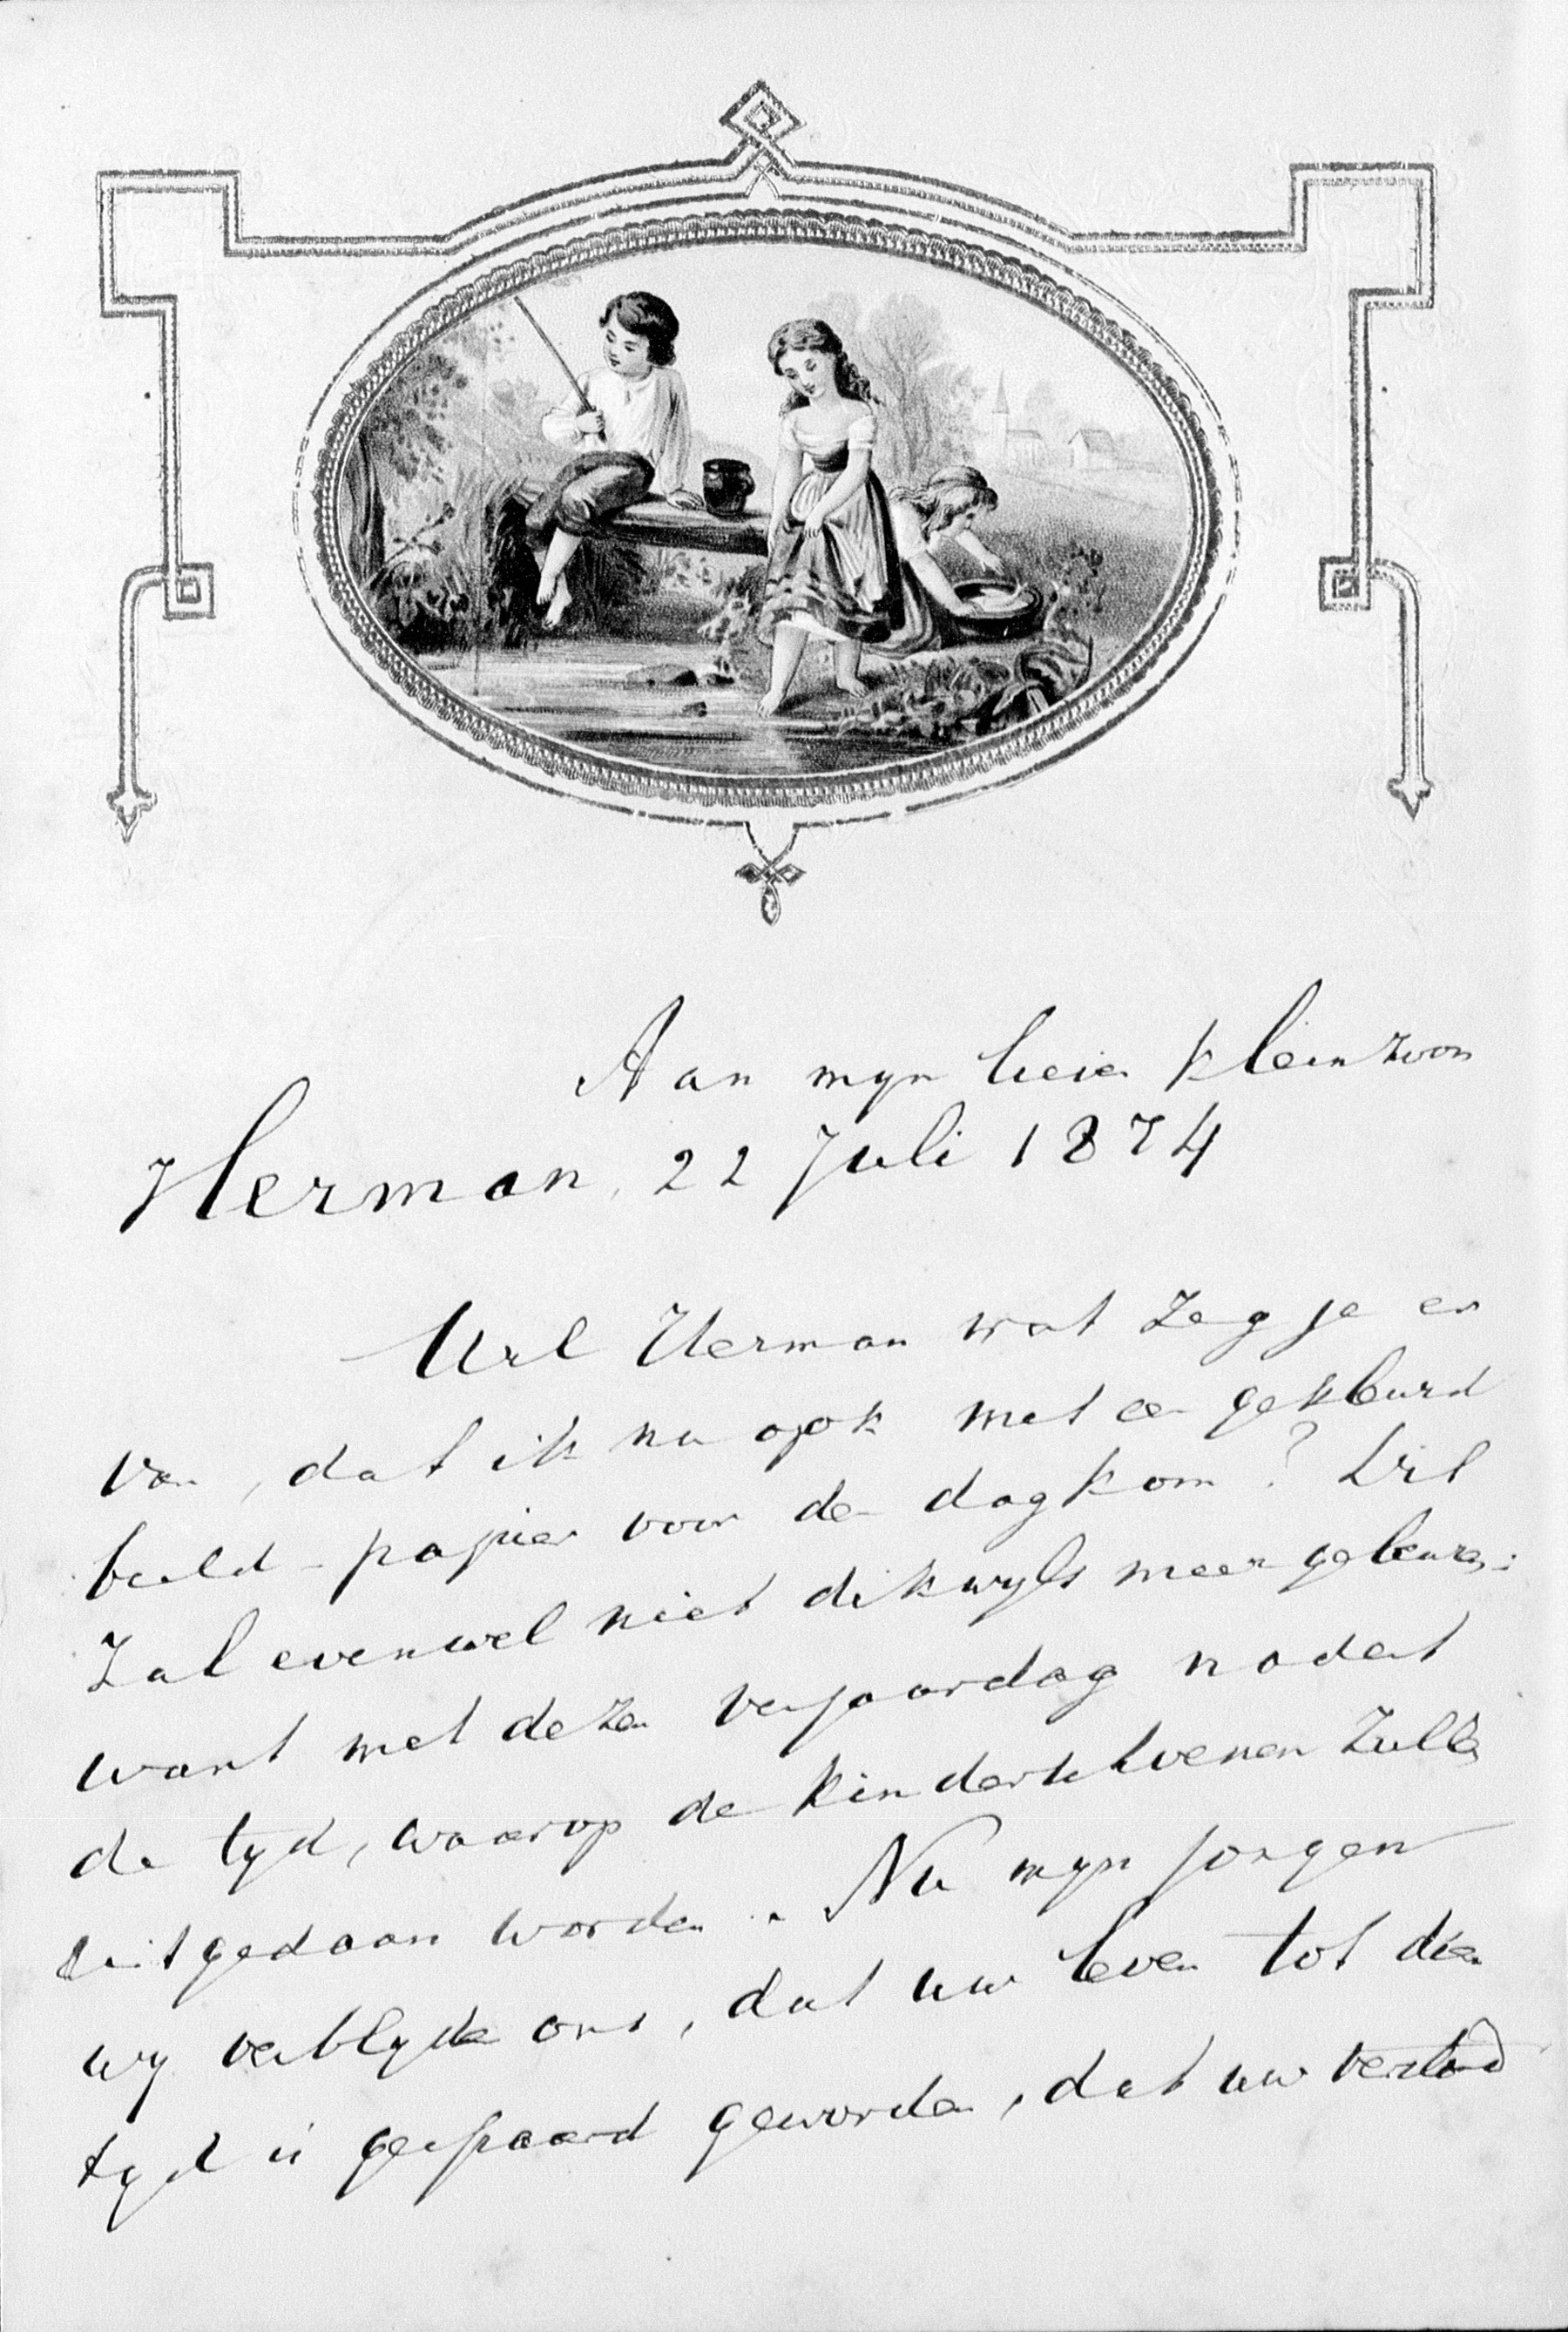 Aan mijn lieve kleinzoon
Herman, 22 Juli 1874
Wel Herman wat zeg je er
van, dat ik nu ook met een gekleurd
beeld-papier voor den dag kom? Dit
zal evenwel niet dikwyls meer gebeuren:
want met dezen verjaardag nadert
de tyd, waarop de kinderschoenen zullen
uitgedaan worden. Nu myn jongen
wy verblyden ons, dat uw leven tot dien
tyd is gespaard geworden, dat uw verstand